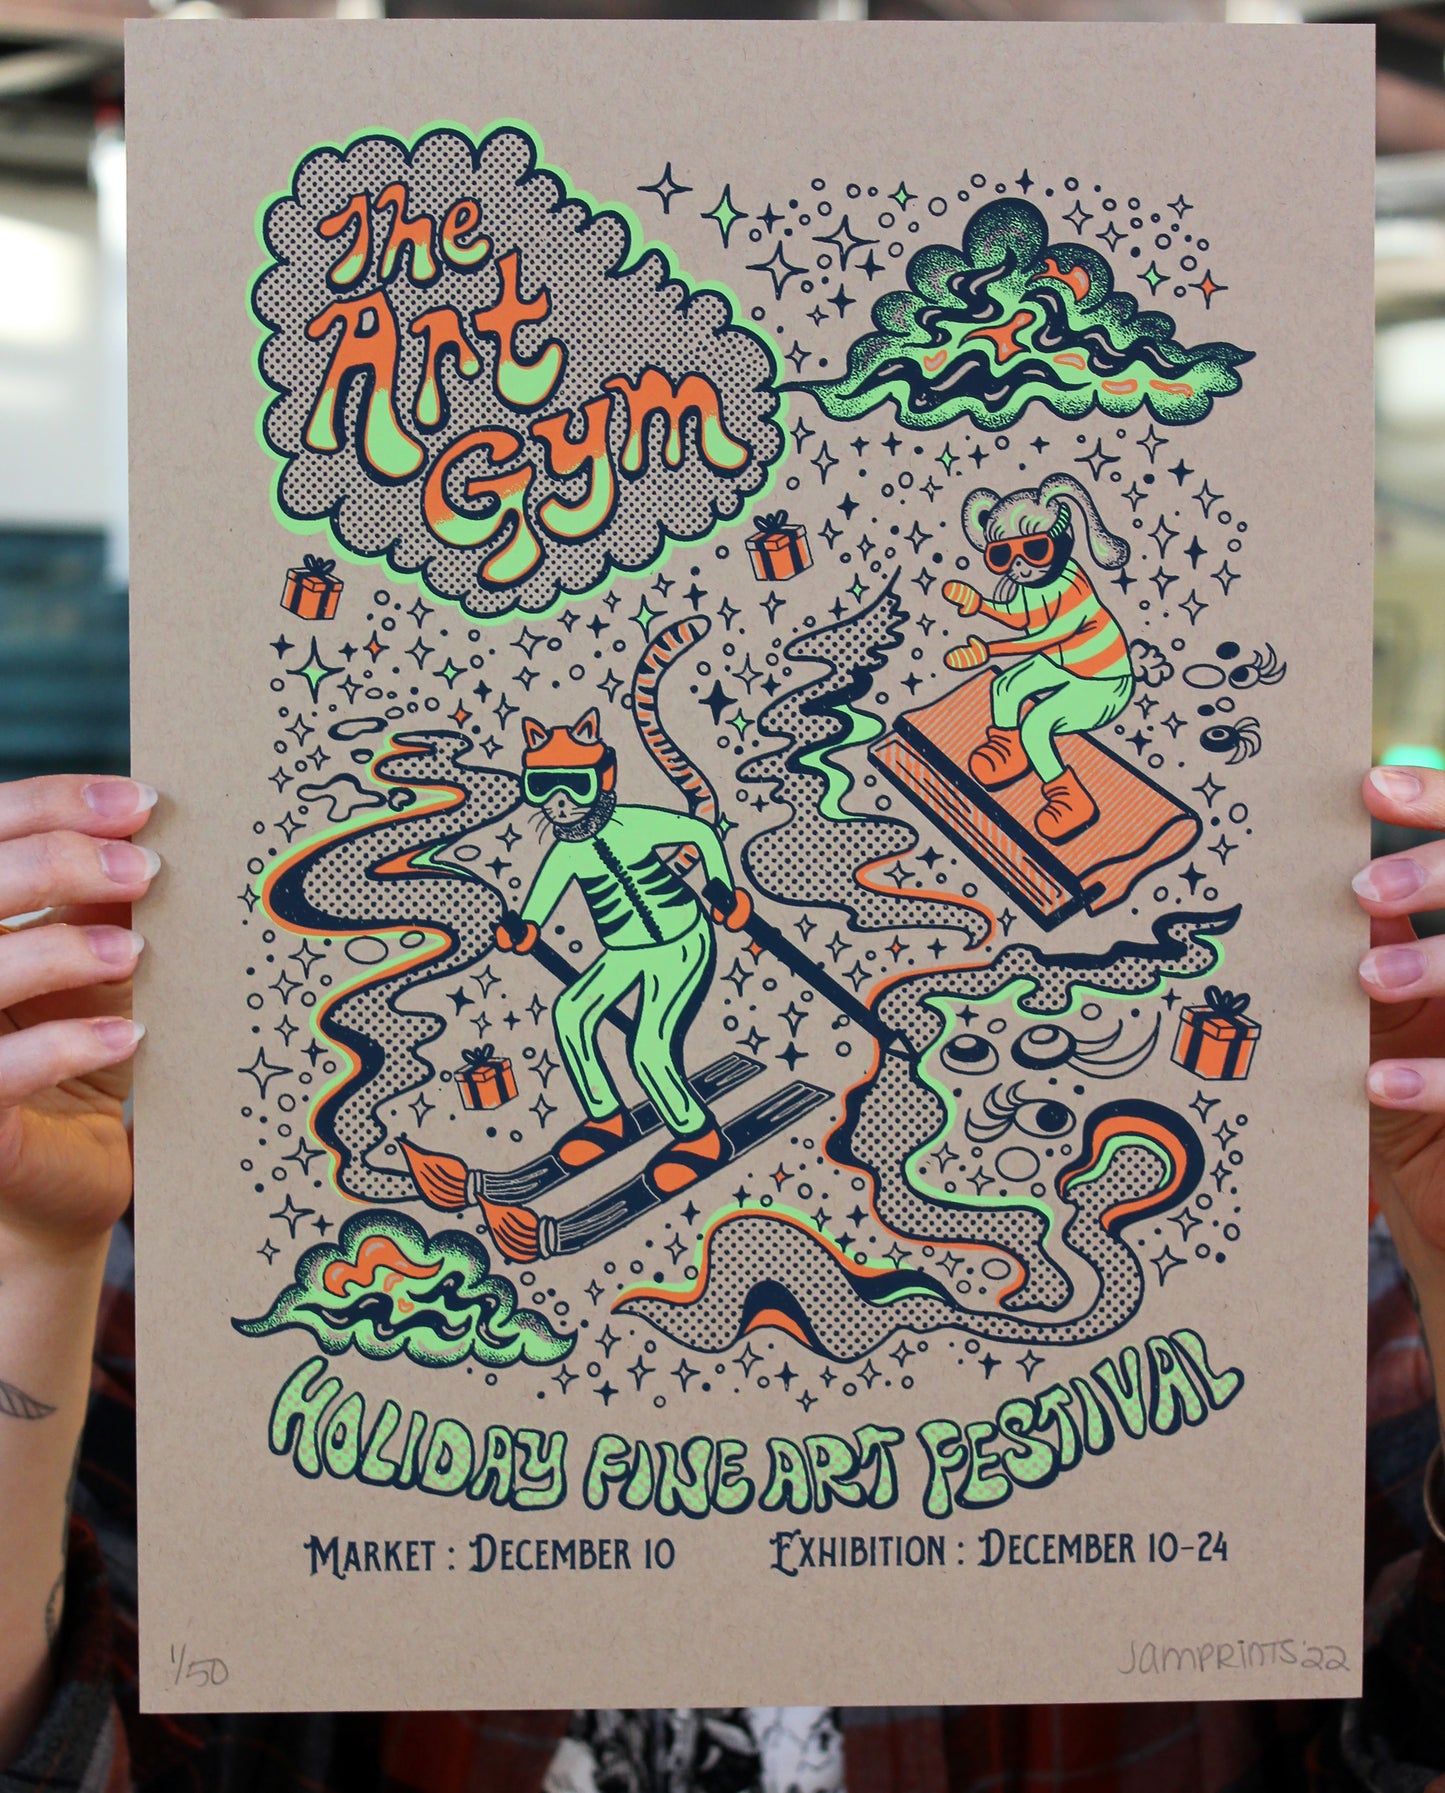 The
Art
Gym
HOLIDAY FINE ART FESTIVAL
MARKET : DECEMBER 10 EXHIBITION : DECEMBER 10-24
1/50 JAMPRINTS '22